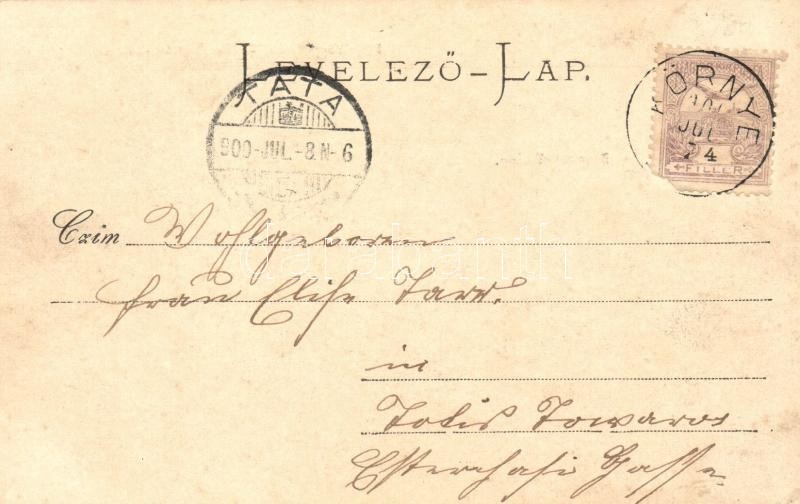 LEVELEZŐ-LAP.
TATA
900-JUL.-8.N-6
KÖRNYE
JUL
FILLÉR
Czim Wohlgeboren
Frau Elise Tarr.
in
Totis Towaros
Esterhasi Gasse